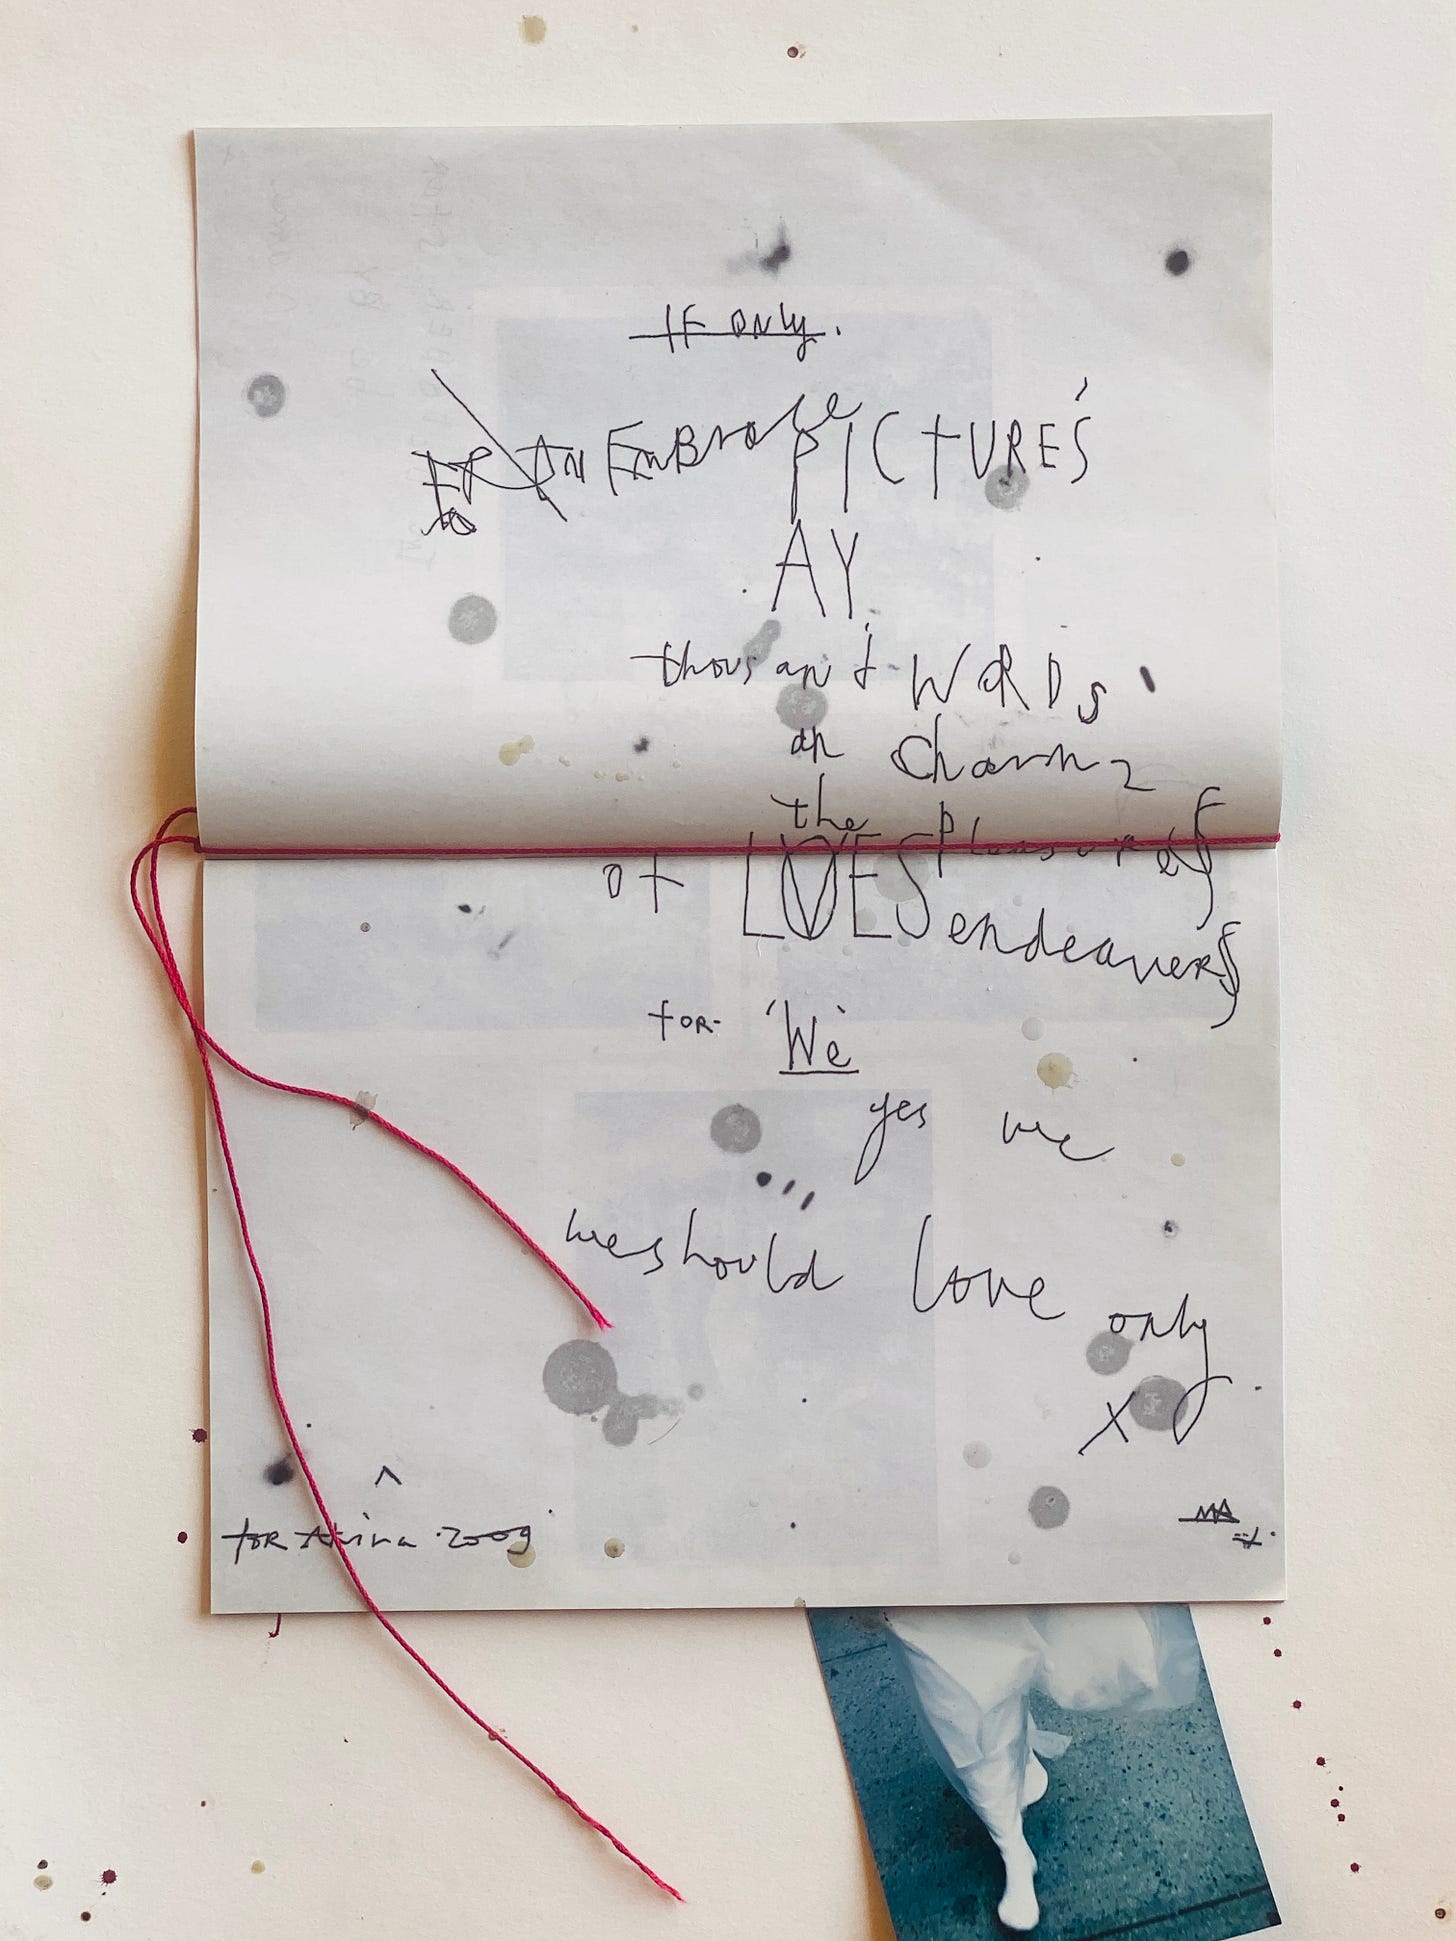 IF ONLY.
AN EMBrace PICTURE'S
AY
thousant WORDS
an
the Pleasures
of LOVES endeavers
for 'We'
yes we
we should love only
x
for Akira 2009
MA